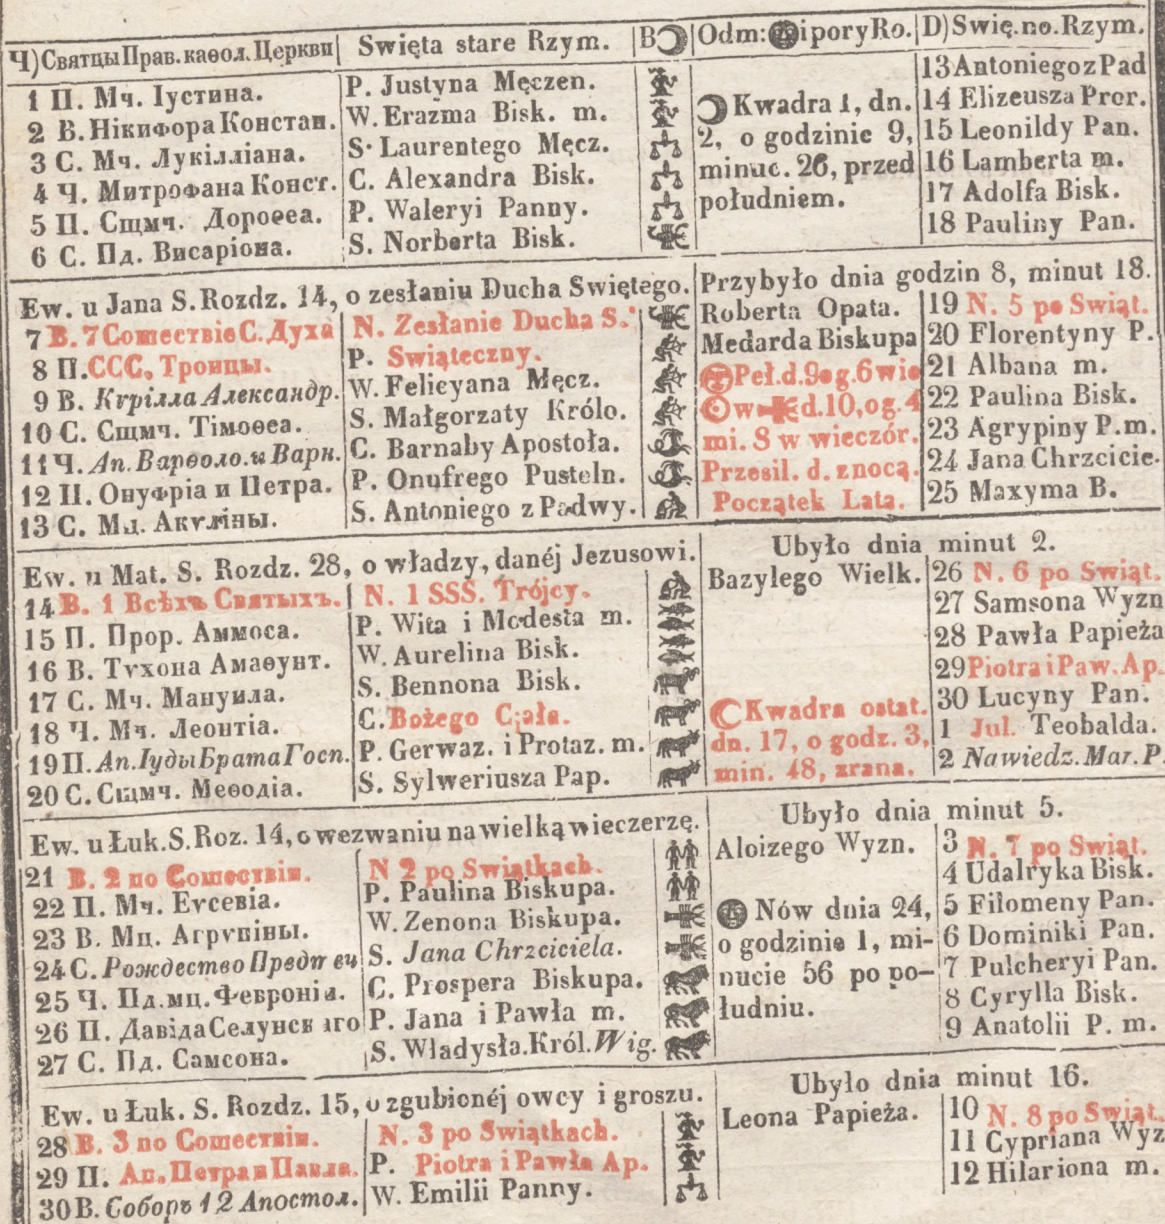 Ч) Святцы Прав. каѳол. Церкви | Swięta stare Rzym. | B☽ | Odm: i pory Ro. | D) Swię. no. Rzym.
1 П. Мч. Іустина. | P. Justyna Męczen. | 13 Antoniego z Pad
2 В. Нікифора Констан. | W. Erazma Bisk. m. | ☽ Kwadra 1, dn. | 14 Elizeusza Pror.
3 С. Мч. Лукілліана. | S. Laurentego Męcz. | 2, o godzinie 9, | 15 Leonildy Pan.
4 Ч. Митрофана Конст. | C. Alexandra Bisk. | minuc. 26, przed | 16 Lamberta m.
5 П. Сщмч. Дороѳеа. | P. Waleryi Panny. | południem. | 17 Adolfa Bisk.
6 С. Пд. Висаріона. | S. Norberta Bisk. | 18 Pauliny Pan.
Ew. u Jana S. Rozdz. 14, o zesłaniu Ducha Swiętego. | Przybyło dnia godzin 8, minut 18.
7 В. 7 Сошествіе С. Духа | N. Zesłanie Ducha S. | Roberta Opata. | 19 N. 5 po Swiąt.
8 П. ССС. Троицы. | P. Swiąteczny. | Medarda Biskupa | 20 Florentyny P.
9 В. Кѵрілла Александр. | W. Felicyana Męcz. | Peł. d. 9 o g. 6 wie | 21 Albana m.
10 С. Сщмч. Тімоѳеа. | S. Małgorzaty Królo. | ☉ w d. 10, o g. 4 | 22 Paulina Bisk.
11 Ч. Ап. Варѳоло. и Варн. | C. Barnaby Apostoła. | mi. 8 w wieczór. | 23 Agrypiny P. m.
12 П. Онуфріа и Петра. | P. Onufrego Pusteln. | Przesil. d. z nocą. | 24 Jana Chrzcicie.
13 С. Мц. Акѵліны. | S. Antoniego z Padwy. | Początek Lata. | 25 Maxyma B.
Ew. u Mat. S. Rozdz. 28, o władzy, danéj Jezusowi. | Ubyło dnia minut 2.
14 В. 1 Всѣхъ Святыхъ. | N. 1 SSS. Trójcy. | Bazylego Wielk. | 26 N. 6 po Swiąt.
15 П. Прор. Аммоса. | P. Wita i Modesta m. | 27 Samsona Wyzn
16 В. Тѵхона Амаѳунт. | W. Aurelina Bisk. | 28 Pawła Papieża
17 С. Мч. Мануила. | S. Bennona Bisk. | 29 Piotra i Paw. Ap.
18 Ч. Мч. Леонтіа. | C. Bożego Ciała. | ☾ Kwadra ostat. | 30 Lucyny Pan.
19 П. Ап. Іуды Брата Госп. | P. Gerwaz. i Protaz. m. | dn. 17, o godz. 3, | 1 Jul. Teobalda.
20 С. Сщмч. Меѳодіа. | S. Sylweriusza Pap. | min. 48, zrana. | 2 Nawiedz. Mar. P.
Ew. u Łuk. S. Roz. 14, o wezwaniu na wielką wieczerzę. | Ubyło dnia minut 5.
21 В. 2 по Сошествіи. | N 2 po Swiątkach. | Aloizego Wyzn. | 3 N. 7 po Swiąt.
22 П. Мч. Еѵсевіа. | P. Paulina Biskupa. | 4 Udalryka Bisk.
23 В. Мц. Агрѵпіны. | W. Zenona Biskupa. | Nów dnia 24, | 5 Filomeny Pan.
24 С. Рождество Предтечи | S. Jana Chrzciciela. | o godzinie 1, mi- | 6 Dominiki Pan.
25 Ч. Пд. мц. Февроніа. | C. Prospera Biskupa. | nucie 56 po po- | 7 Pulcheryi Pan.
26 П. Давіда Селунскаго | P. Jana i Pawła m. | łudniu. | 8 Cyrylla Bisk.
27 С. Пд. Самсона. | S. Władysła. Król. Wig. | 9 Anatolii P. m.
Ew. u Łuk. S. Rozdz. 15, o zgubionéj owcy i groszu. | Ubyło dnia minut 16.
28 В. 3 по Сошествіи. | N. 3 po Swiątkach. | Leona Papieża. | 10 N. 8 po Swiąt.
29 П. Ап. Петра и Павла. | P. Piotra i Pawła Ap. | 11 Cypriana Wyz
30 В. Соборъ 12 Апостол. | W. Emilii Panny. | 12 Hilariona m.